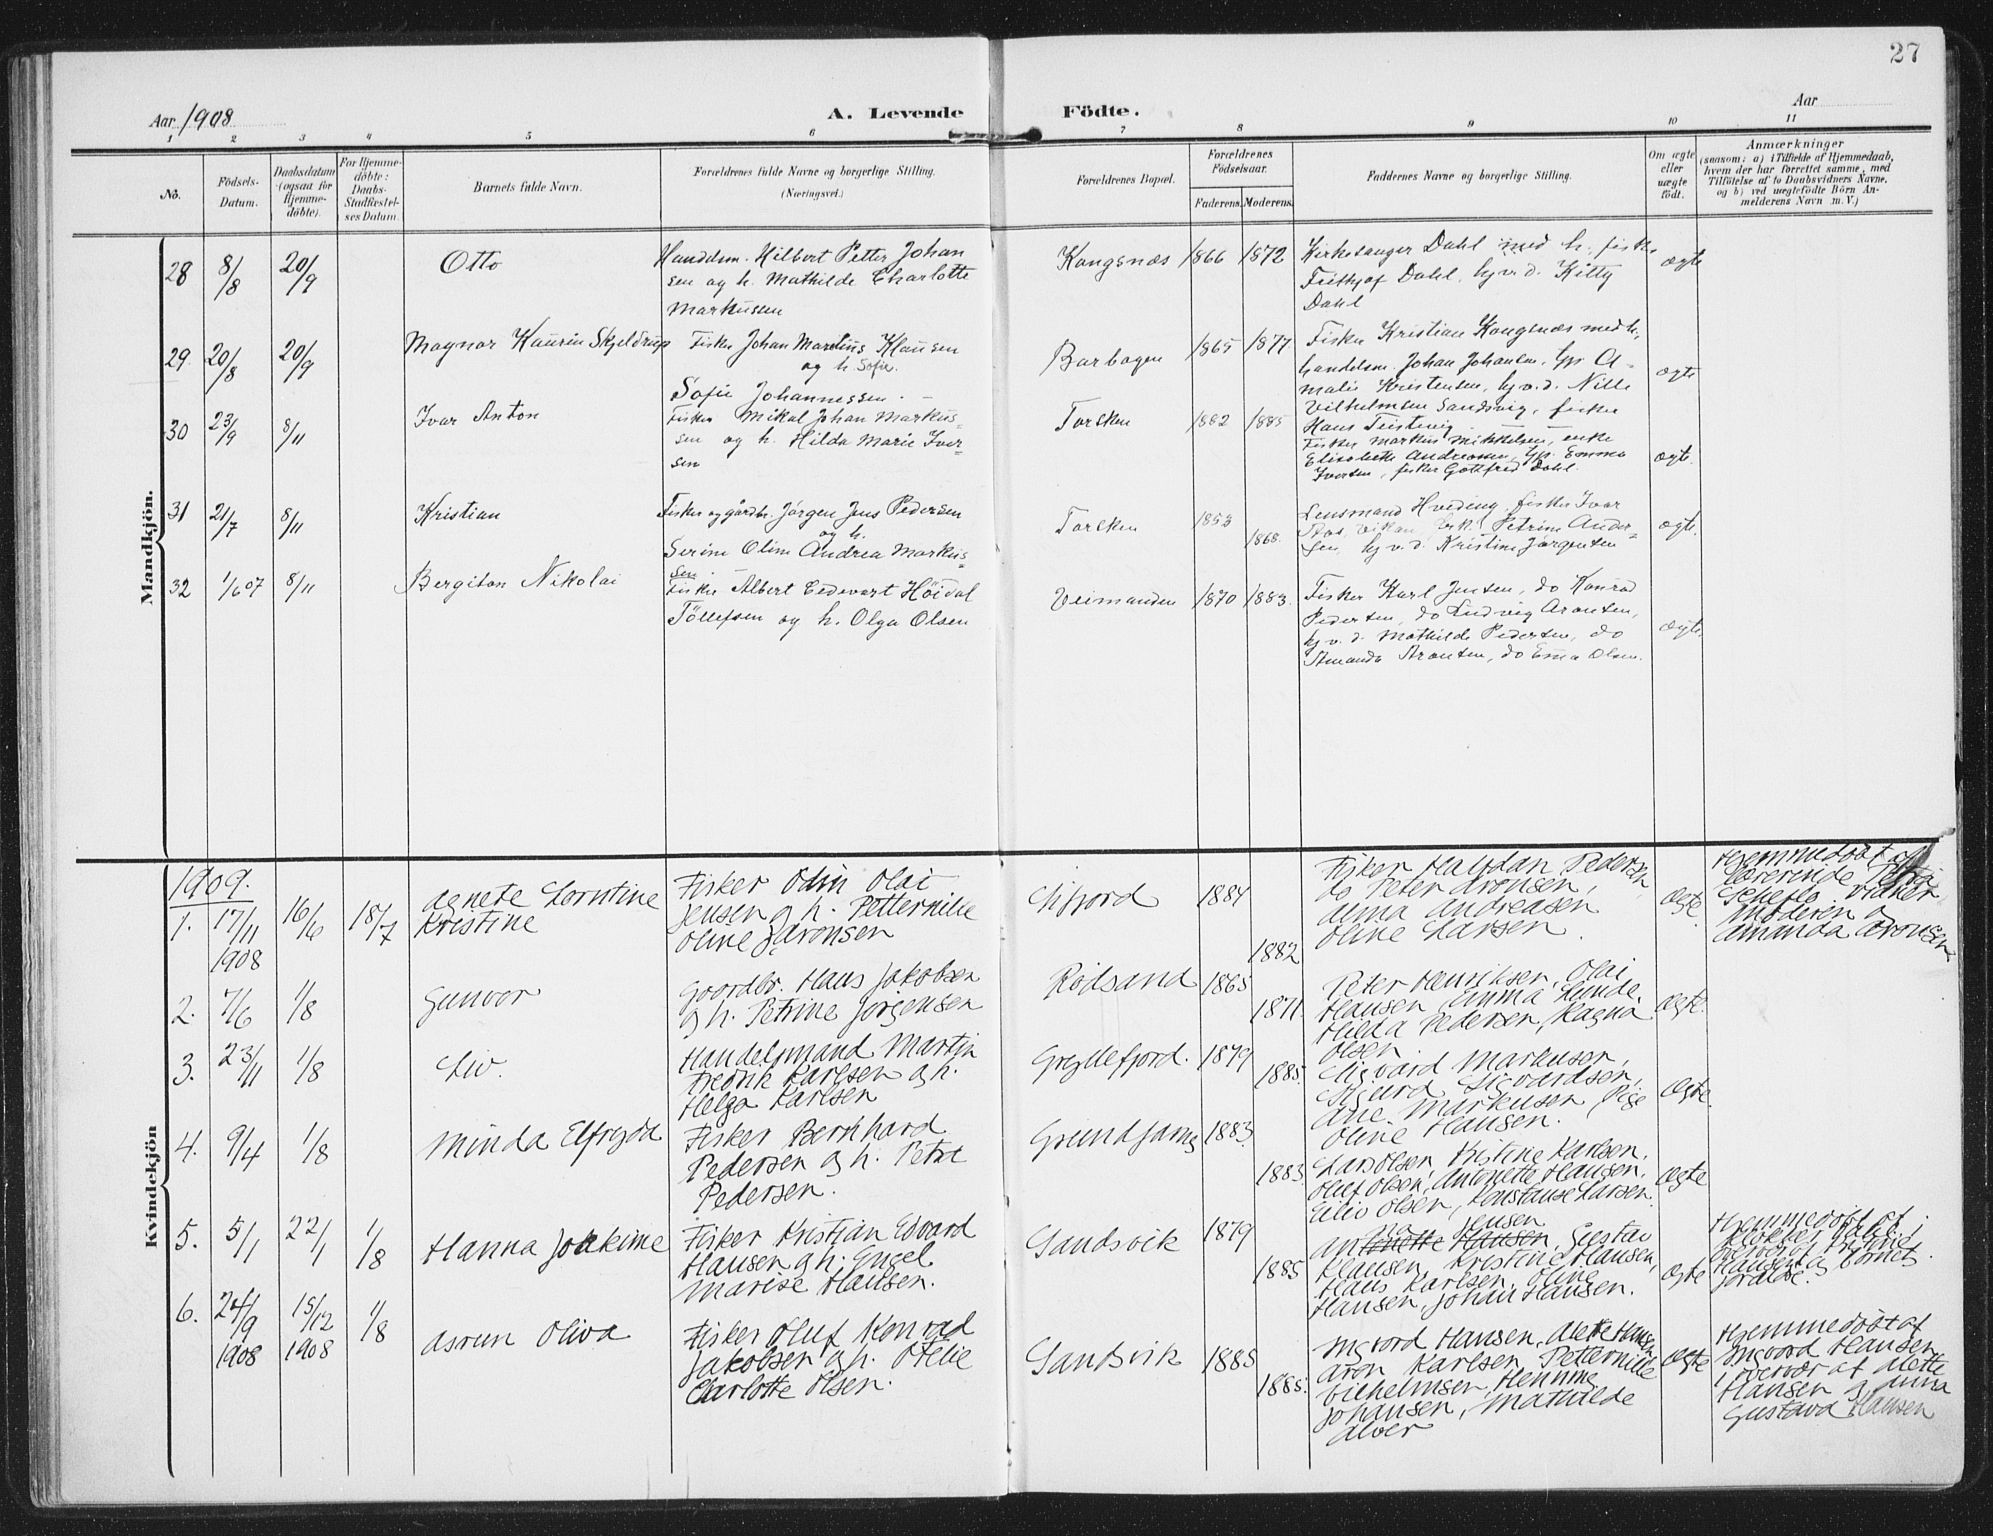 27
Aar 1908
A. Levende
Födte.
Aar
1 2 3 4 5 6 7 8 9 10 11
No.
Födsels-
Datum.
Daabsdatum
(ogsaa for
Hjemme-
døbte).
For Hjemme-
døbte:
Daabs-
Stadfæstel-
ses Datum.
Barnets fulde Navn.
Forældrenes fulde Navne og borgerlige Stilling.
(Næringsvei.)
Forældrenes Bopæl.
Forældrenes
Födselsaar.
Faderens.
Moderens.
Faddernes Navne og borgerlige Stilling.
Om ægte
eller
uægte
födt.
Anmærkninger
(saasom: a) i Tilfælde af Hjemmedaab,
hvem der har forrettet samme, med
Tilföielse af to Daabsvidners Navne,
og b) ved uægtefödte Börn An-
melderens Navn m. V.)
Mandkjön.
28 8/8 20/9 Otto
Handelsm. Hilbert Petter Johan
sen og h. Mathilde Charlotte
Markussen
Kongsnæs 1866 1872
Kirkesanger Dahl med h. fisker
Frithjof Dahl, hj v. d. Kitty
Dahl
ægte
29. 20/8 20/9 Magnor Kaurin Skjeldrup
Fisker Johan Marelius Klausen
og h. Sofie.
Sofie Johannessen.
Barbogen 1865 1877.
Fisker Kristian Kongsnæs med h.,
handelsm. Johan Johansen,
malie Kristensen, hj v. d. Nille
Vilhelmsen Sandsvig, fisker
Hans Teistevig
ægte
30 23/9 8/11 Ivar Anton
Fisker Mikal Johan Markus-
sen og h. Hilda Marie Iver-
sen
Torsken 1882 1885
Fisker Markus Mikkelsen, enke
Elisabeth Andreasen, Emma
Iversen, fisker Gottfred Dahl.
ægte.
31 21/7 8/11 Kristian
Fisker og gårdbr. Jørgen Jens Pedersen
og h.
Serine Oline Andrea Markus-
sen.
Torsken 1853 1868.
Lensmand Hveding, fisker Ivar
Petrine Ander-
sen, hj v. d. Kristine Jørgensen
ægte.
32 1/6 07 8/11 Bergiton Nikolai
Fisker Albert Edevart Höidal
Töllefsen og h. Olga Olsen
Veimanden 1870 1883.
Fisker Karl Jensen, do Konrad
Pedersen, do Ludvig Aronsen,
hj v. d. Mathilde Pedersen, do
Amanda Aronsen, do Emma Olsen.
ægte
Kvindekjön
1909.
1. 17/11 1908 16/6 18/7
Agnete Lorntine
Kristine
Fisker Odin Olai
Jensen og h. Petternille
Oline Aronsen
Sifjord 1884 1882
Fisker Halfdan Pedersen
do Peter Aronsen,
Anna Andreasen
Oline Larsen.
Ægte.
Hjemmedøbt af
Lærerinde
Vidner
Moderen og
Amanda Aronsen
2. 7/6 1/8 Gunvor
Gaardbr. Hans Jakobsen
og h. Petrine Jörgensen
Rödsand 1865 1871
Peter Henriksen, Olai
Hansen, Emma Lunde,
Hilda Pedersen, Ragna
Olsen
Ægte.
3. 23/11 1/8 Liv.
Handelsmand Martin
Fredrik Karlsen og h.
Helga Karlsen
Gryllefjord. 1879 1885.
Sigvard Markusen,
Sigurd Sigvardsen,
Ane Markusen, Pige
Oline Hansen.
Ægte.
4. 9/4 1/8 Minda Elfryda
Fisker Bernhard
Pedersen og h. Petra
Pedersen.
Grundfarnes 1883. 1883.
Lars Olsen, Kristine Karlsen.
Oluf Olsen, Antonette Hansen.
Eiliv Olsen, Konstanse Larsen.
Ægte
5. 5/1 22/1 1/8 Hanna Joakime
Fisker Kristian Edvard
Hansen og h. Engel
Marise Hansen.
Sandsvik 1879 1885
na Jensen
Antonette Hansen, Gustav
Klausen, Kristine Hansen,
Hans Karlsen, Oline
Hansen, Johan Hansen.
Ægte
Hjemmedøbt af
Klokker Dahl i
Hansen og Barnets
forældre.
6. 24/9 1908 15/12 1908 1/8 Asrun Oliva
Fisker Oluf Konrad
Jakobsen og h. Otelie
Carlotte Olsen.
Sandsvik 1885 1885.
Ingvord Hansen, Alette Hansen
Aron Karlsen, Petternille
Vilhelmsen, Hemme
Johansen, Mathilde
Alver
Ægte
Hjemmedøbt af
Ingvord Hansen
i overvær af Alette
Hansen og Anna
Gustava Hansen